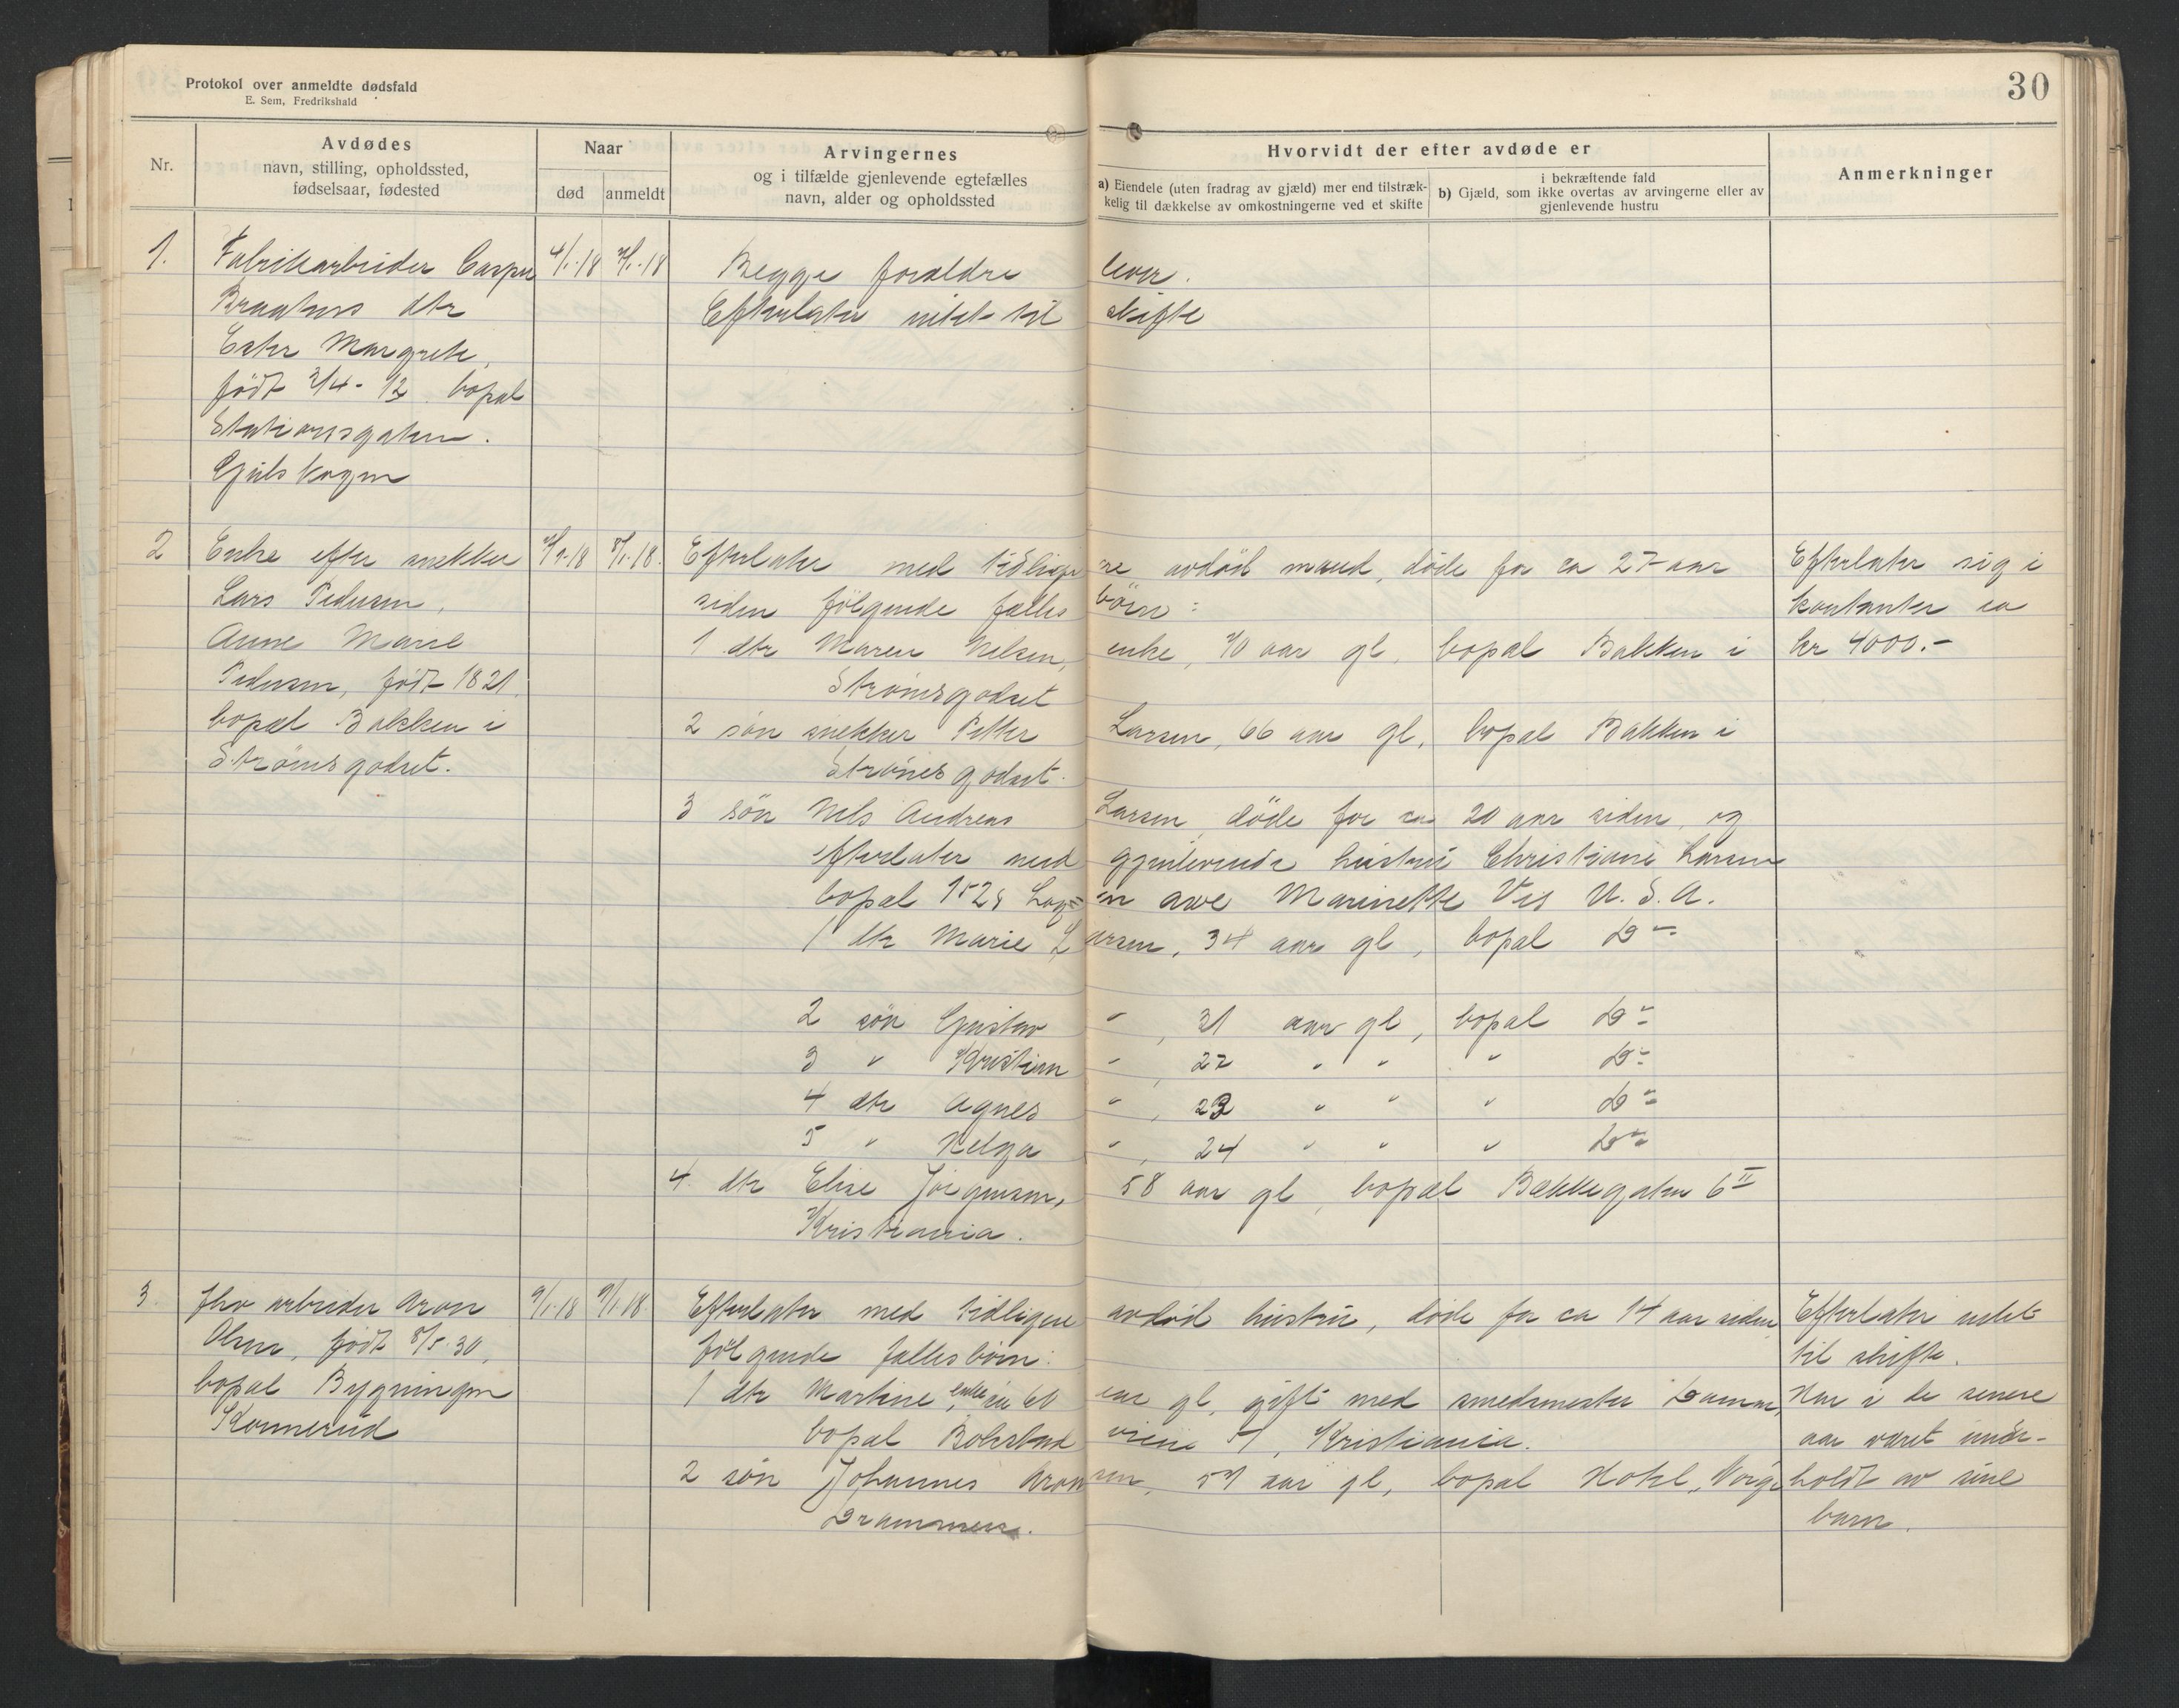 Protokol over anmeldte dødsfald
E. Sem, Fredrikshald
30
Nr.
Avdødes
navn, stilling, opholdssted,
fødselsaar, fødested
Naar
død
anmeldt
Arvingernes
og i tilfælde gjenlevende egtefælles
navn, alder og opholdssted
Hvorvidt der efter avdøde er
a) Eiendele (uten fradrag av gjæld) mer end tilstræk-
kelig til dækkelse av omkostningerne ved et skifte
i bekræftende fald
b) Gjæld, som ikke overtas av arvingerne eller av
gjenlevende hustru
Anmerkninger
1.
Fabrikarbeider
Braatens dtr
Ester Margrete,
född 3/4-12. bopæl
Stationsgaten.
Gulskogen
4/1.18
7/1.18
Begge forældre lever.
Efterlater intet til skifte
2
Enke efter snekker
Lars Pedersen,
Anne Marie
Pedersen, född 1821,
bopæl Bakken i
Strømsgodset.
8/1.18.
Efterlater med tidligere avdöd mand, döde for ca 27 aar
siden fölgende fælles börn:
1 dtr Maren Nelsen, enke, 70 aar gl, bopæl Bakken i
Strømsgodset
2 sön snekker Petter Larsen, 66 aar gl, bopæl Bakken i
Strømsgodset.
3 sön Nels Andreas Larsen, döde for ca 20 aar siden, og
efterlater med gjenlevende hustru Christiane Larsen
bopæl 1528 Logan ave Marinette Vis U.S.A.
1 dtr Marie Larsen, 34 aar gl, bopæl Do
2 sön Gustav " , 31 aar gl, bopæl Do
3 " Kristian " , 27 " " " Do
4 dtr Agnes " , 23 " " " Do
5 " Helga " , 24 " " " Do
4 dtr Elise Jörgensen, 58 aar gl, bopæl Bakkegaten 6 II
Kristiania.
Efterlater sig i
kontanter ca
kr 4000.-
3.
Fhv arbeider Aron
Olsen, född 8/5.30,
bopæl Bygningen
Konnerud
9/1.18
9/1.18.
Efterlater med tidligere avdöd hustru, döde for ca 14 aar siden
fölgende fællesbörn:
1 dtr Martine, 60 aar gl, gift med smedmester
bopæl Kristiania.
2 sön Johannes Aronsen, 57 aar gl, bopæl Hotel "Norge
Drammen.
Efterlater intet
til skifte.
Har i de senere
aar været under-
holdt av sine
barn.